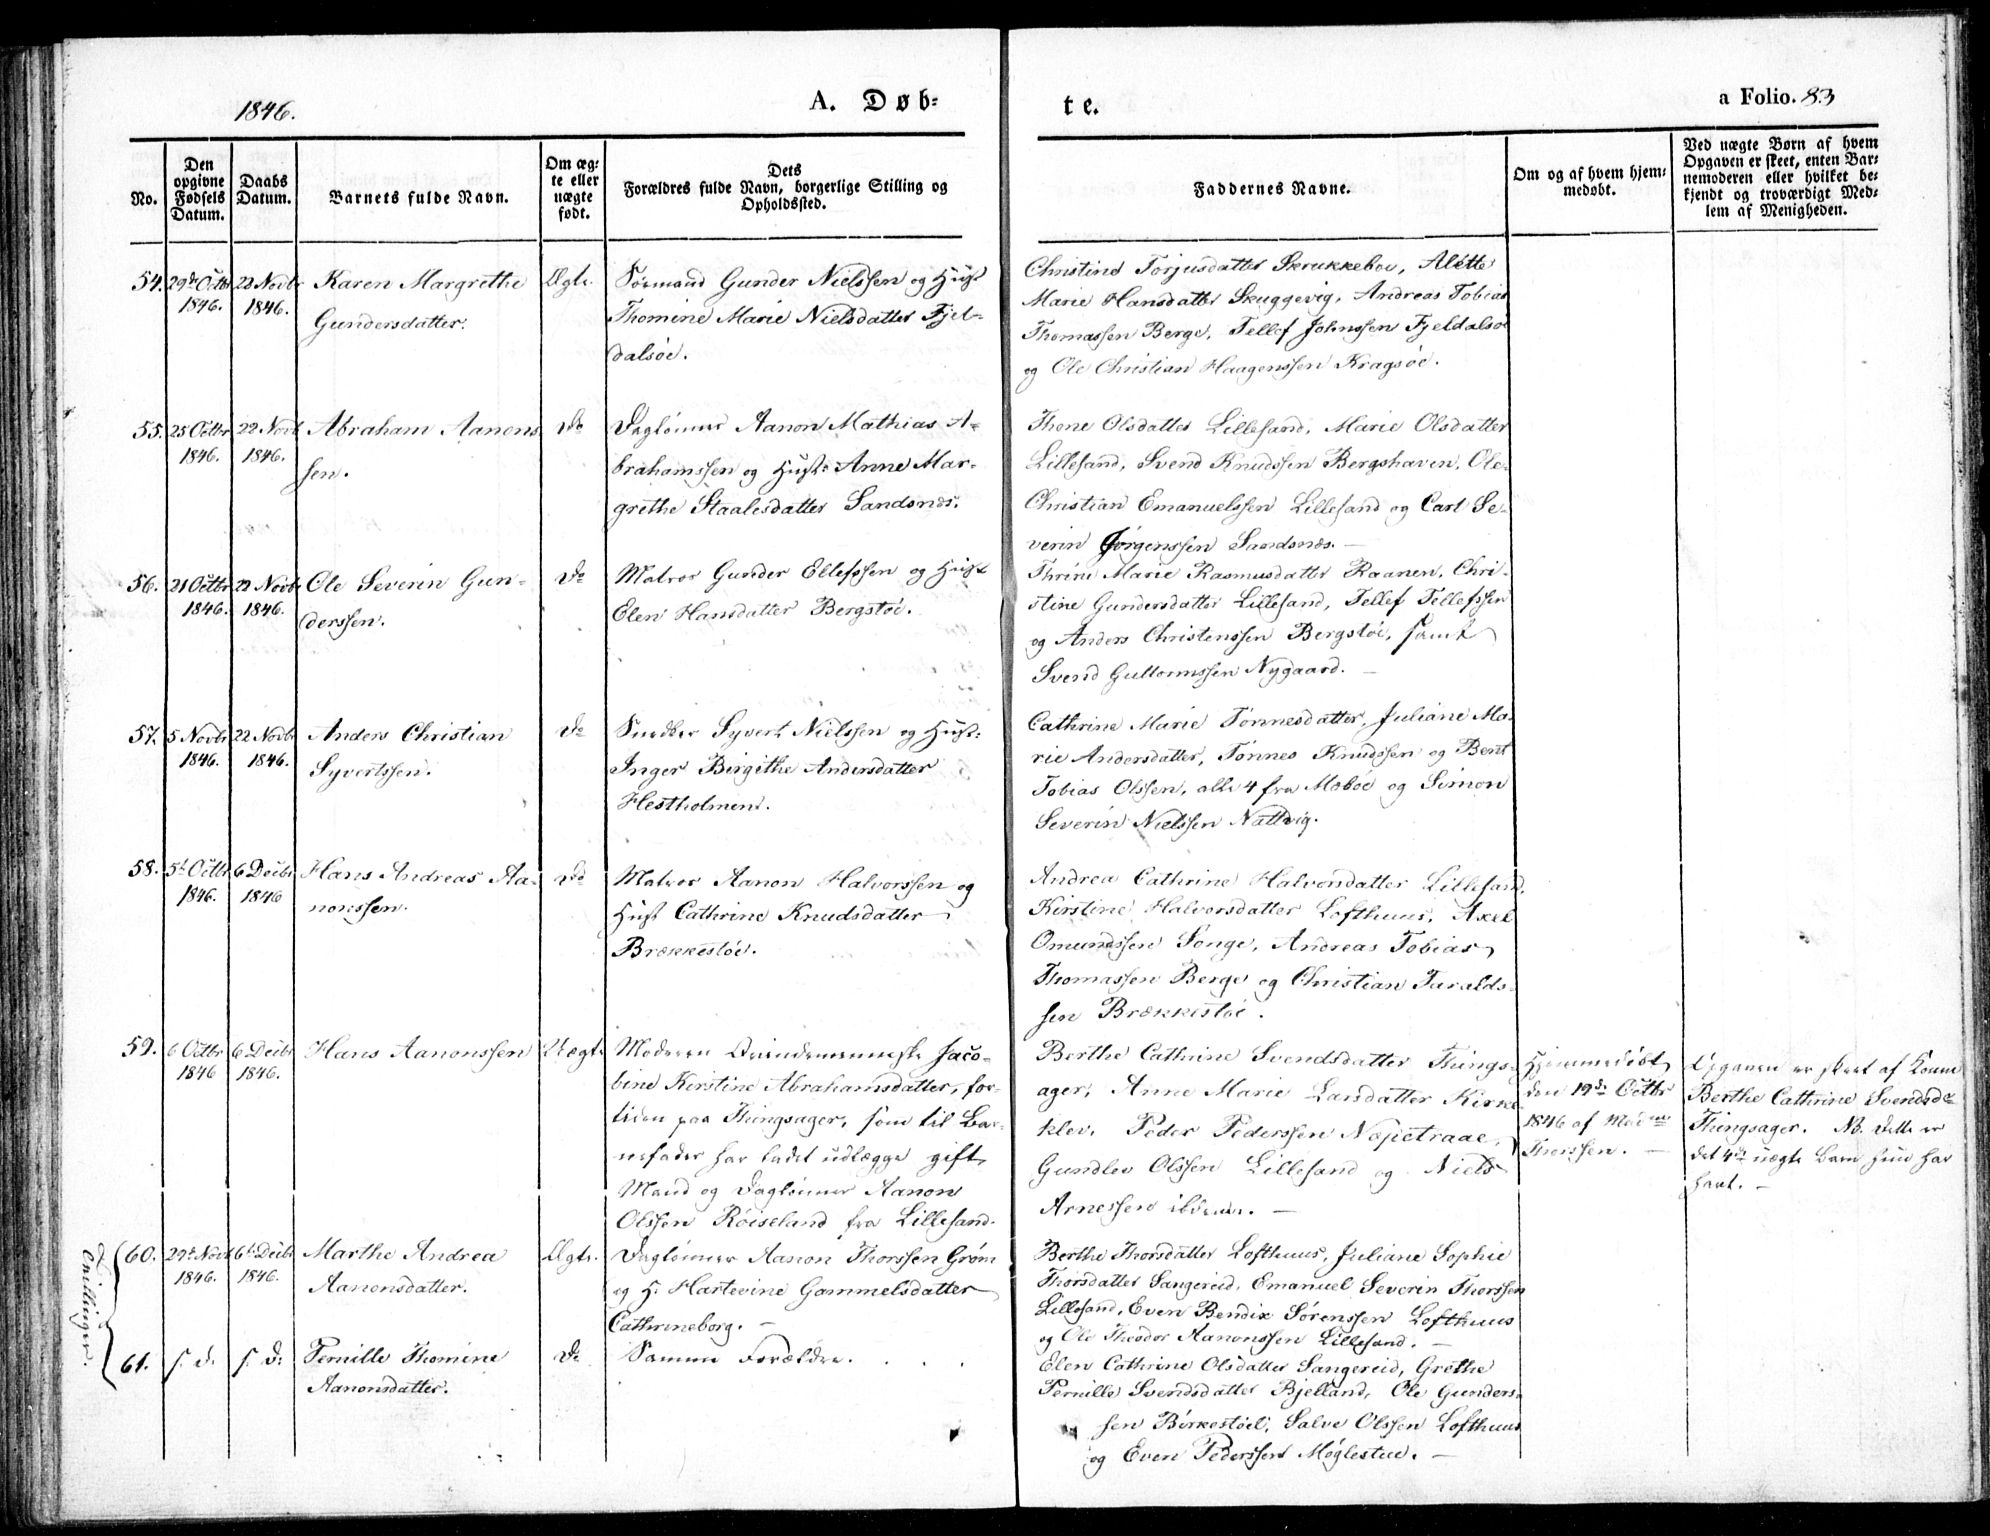 1846.
A. Døb-
te.
a Folio. 83
No.
Den
opgivne
Fødsels
Datum.
Daabs
Datum.
Barnets fulde Navn.
Om æg-
te eller
uægte
født.
Dets
Forældres fulde Navn, borgerlige Stilling og
Opholdssted.
Faddernes Navne.
Om og af hvem hjem-
medøbt.
Ved uægte Børn af hvem
Opgaven er skeet, enten Bar-
nemoderen eller hvilket be-
kjendt og troværdigt Med-
lem af Menigheden.
54. 29de Octbr 22 Novbr Karen Margrethe Ægte. Sørmand Gunder Nielssen og Hust
1846. 1846. Gundersdatter. Thomine Marie Nielsdatter Fjel-
dalsøe.
Christine Torjusdatter Skrukkeboe, Alette
Marie Hansdatter Skuggevig, Andreas Tobias
Thomassen Berge, Tellef Johnssen Fjeldalsøe
og Ole Christian Haagenssen Kragsöe.
55. 25 Octbr 22 Novb Abraham Aanons Do Daglönner Aanon Mathias A-
1846. 1846. sen. brahamssen og Hust: Anne Mar-
grethe Staalesdatter Sandsnes.
Thone Olsdatter Lillesand, Marie Olsdatter
Lillesand, Svend Knudssen Bergshaven, Ole
Christian Emanuelssen Lillesand og Carl Se-
verin Jörgenssen Sandsnes. —
56. 21 Octbr 22 Novbr Ole Severin Gun- Do Matros Gunder Ellefssen og Hust
1846. 1846. derssen. Elen Hansdatter Bergstöe.
Thrine Marie Rasmusdatter Kaanen, Chri-
stine Gundersdatter Lillesand, Tellef Tellefssen
og Anders Christenssen Bergstöe, samt
Svend Guttormssen Nygaard. —
57. 5 Novbr 22 Novbr Anders Christian Do Snedker Syvert Nielssen og Hust:
1846. 1846. Syvertssen. Inger Birgithe Andersdatter
Hestholmen.
Cathrine Marie Tönnesdatter, Juliane Ma-
rie Andersdatter, Tönnes Knudssen og Bent
Tobias Olssen, alle 4 fra Moböe og Simon
Severin Nielssen Nattvig.
58. 5t Octbr 6 Decbr Hans Andreas Aa- Do Matros Aanon Halvorssen og
1846. 1846 nonssen. Hust Cathrine Knudsdatter
Brækkestöe.
Andrea Cathrine Halvorsdatter Lillesand,
Kirstine Halvorsdatter Lofthuus, Axel
Omundssen Songe, Andreas Tobias
Thomassen Berge og Christian Taralds-
sen Brækkestöe.
59. 6 Octbr 6 Decbr Hans Aanonssen Uægte Moderen Qvindemenneske Jaco-
1846 1846. bine Kirstine Abrahamsdatter, for-
tiden paa Thingsager, som til Bar-
nefader har ladet udlægge gift
Mand og Daglönner Aanon
Olssen Röiseland fra Lillesand.
Berthe Cathrine Svendsdatter Things-
ager, Anne Marie Larsdatter Kirke
klev, Peder Pederssen Nopetraae,
Gundlev Olssen Lillesand og Niels
Arnessen ibidem. —
Hjemmedöbt
den 19de Octbr
1846 af
Thorssen. —
Opgaven er skeet af Kone
Berthe Cathrine Svendsdr
Thingsager. NB. Dette er
det 4de uægte Barn hun har
havt. —
Tvillinger.
60. 29t Novb 6t Decbr Marthe Andrea Ægte. Daglönner Aanon Thorssen Gröm
1846. 1846. Aanonsdatter. og H: Hartevine Gammelsdatter
Cathrineborg. —
Berthe Thorsdatter Lofthuus, Juliane Sophie
Thorsdatter Sangereid, Emanuel Severin Thorssen
Lillesand, Even Bendix Sörenssen Lofthuus
og Ole Theodor Aanonssen Lillesand. —
61. s. d. s. d: Pernille Thomine Do Samme Forældre. . . .
Aanonsdatter.
Elen Cathrine Olsdatter Sangereid, Grethe
Pernille Svendsdatter Bjelland, Ole Gunders-
sen Birkestöel, Salve Olssen Lofthuus
og Even Pederssen Möglestue. —